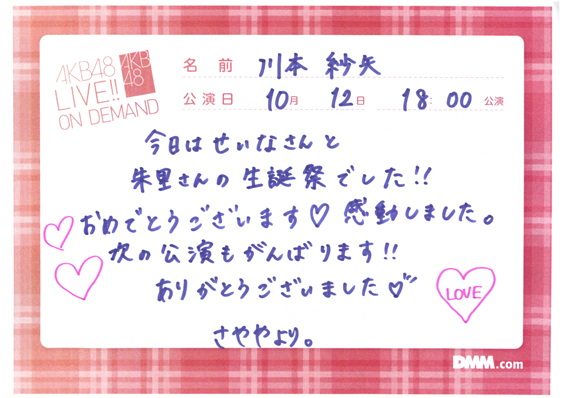 AKB48
LIVE!!
ON DEMAND
AKB
48
名前 川本 紗矢
公演日 10月 12日 18:00 公演
今日はせいなさんと
朱里さんの生誕祭でした!!
おめでとうございます♡感動しました。
次の公演もがんばります!!
ありがとうございました♡
LOVE
さややより。
DMM.com